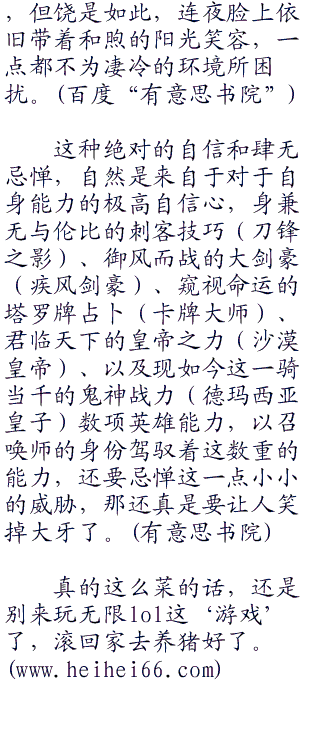 ，但饶是如此，连夜脸上依
旧带着和煦的阳光笑容，一
点都不为凄冷的环境所困
扰。(百度“有意思书院”)
这种绝对的自信和肆无
忌惮，自然是来自于对于自
身能力的极高自信心，身兼
无与伦比的刺客技巧（刀锋
之影）、御风而战的大剑豪
（疾风剑豪）、窥视命运的
塔罗牌占卜（卡牌大师）、
君临天下的皇帝之力（沙漠
皇帝）、以及现如今这一骑
当千的鬼神战力（德玛西亚
皇子）数项英雄能力，以召
唤师的身份驾驭着这数重的
能力，还要忌惮这一点小小
的威胁，那还真是要让人笑
掉大牙了。(有意思书院)
真的这么菜的话，还是
别来玩无限lol这‘游戏’
了，滚回家去养猪好了。
(www.heihei66.com)